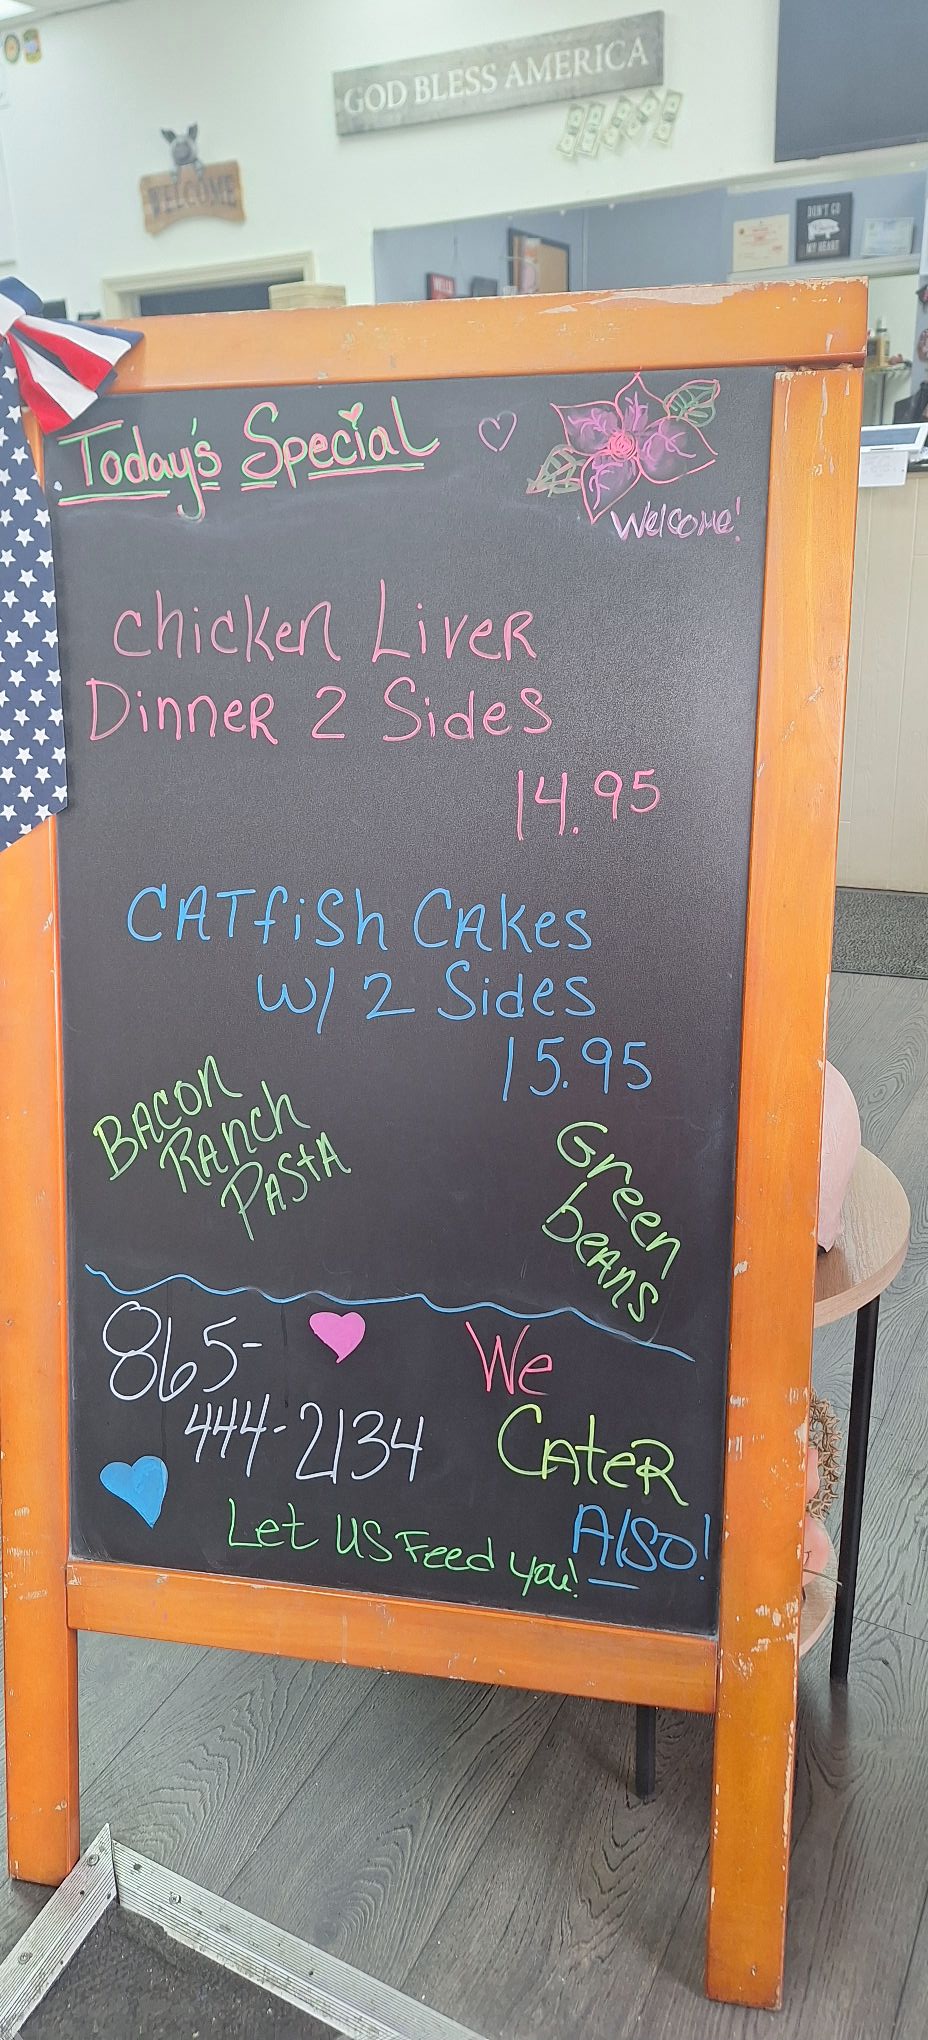 GOD BLESS AMERICA
WELCOME
DON'T GO
MY HEART
Today's Special
Welcome!
Chicken Liver
Dinner 2 Sides
14.95
CATfish CAkes
w/ 2 Sides
15.95
BACON
RANch
PAStA
Green
beANS
865-
444-2134
We
CAteR
Also!
Let US Feed you!